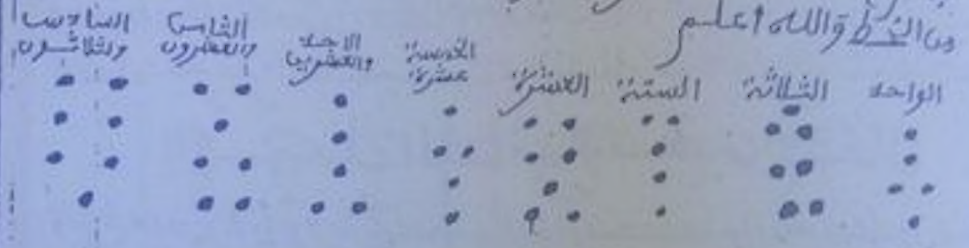 من النقط والله اعلم
الواحد الثلاثة الستة العشرة الخمسة عشرة الاحد والعشرين الثامن والعشرون السادس والثلاثون